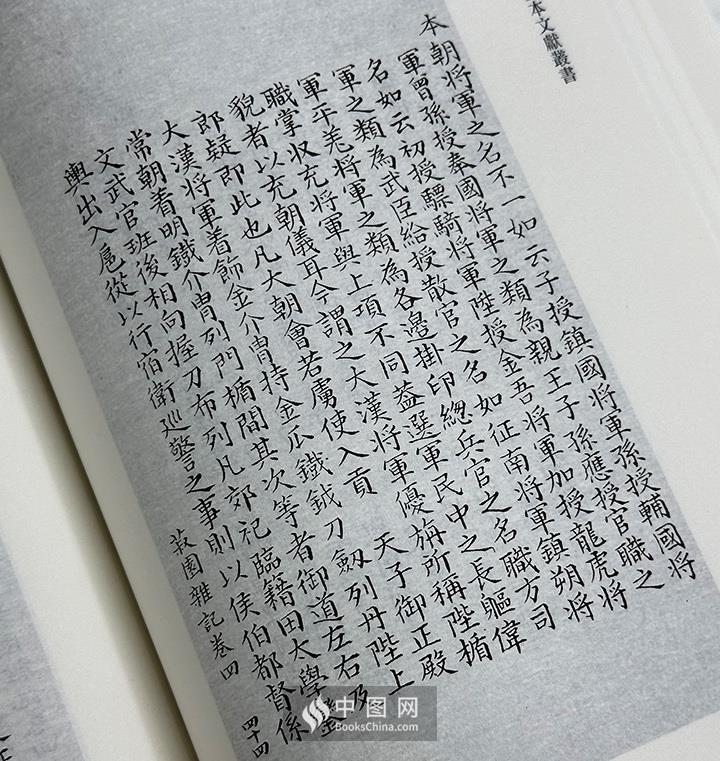 本文獻叢書
本朝將軍之名不一如云子授鎮國將軍孫授輔國將
軍曾孫授奉國將軍之類為親王子孫應授官職之
名如云初授驃騎將軍陞授金吾將軍加授龍虎將
軍之類為武臣給授散官之名如征南將軍鎮朔將
軍平羌將軍之類為各邊掛印總兵官之名職方司
職掌收充將軍與上項不同蓋選軍民中之長軀偉
貌者以充朝儀耳今謂之大漢將軍優旃所稱陛楯
郎疑即此也凡大朝會若虜使入貢 天子御正殿
大漢將軍着飾金介冑持金瓜鐵鉞刀劔列丹陛上
常朝着明鐵介冑列門楯間其次等者御道左右及
文武官班後相向握刀布列凡郊祀臨籍田太學鑾
輿出入扈從以行宿衛巡警之事則以侯伯都督係
菽園雜記卷四 四十四
中图网
BooksChina.com